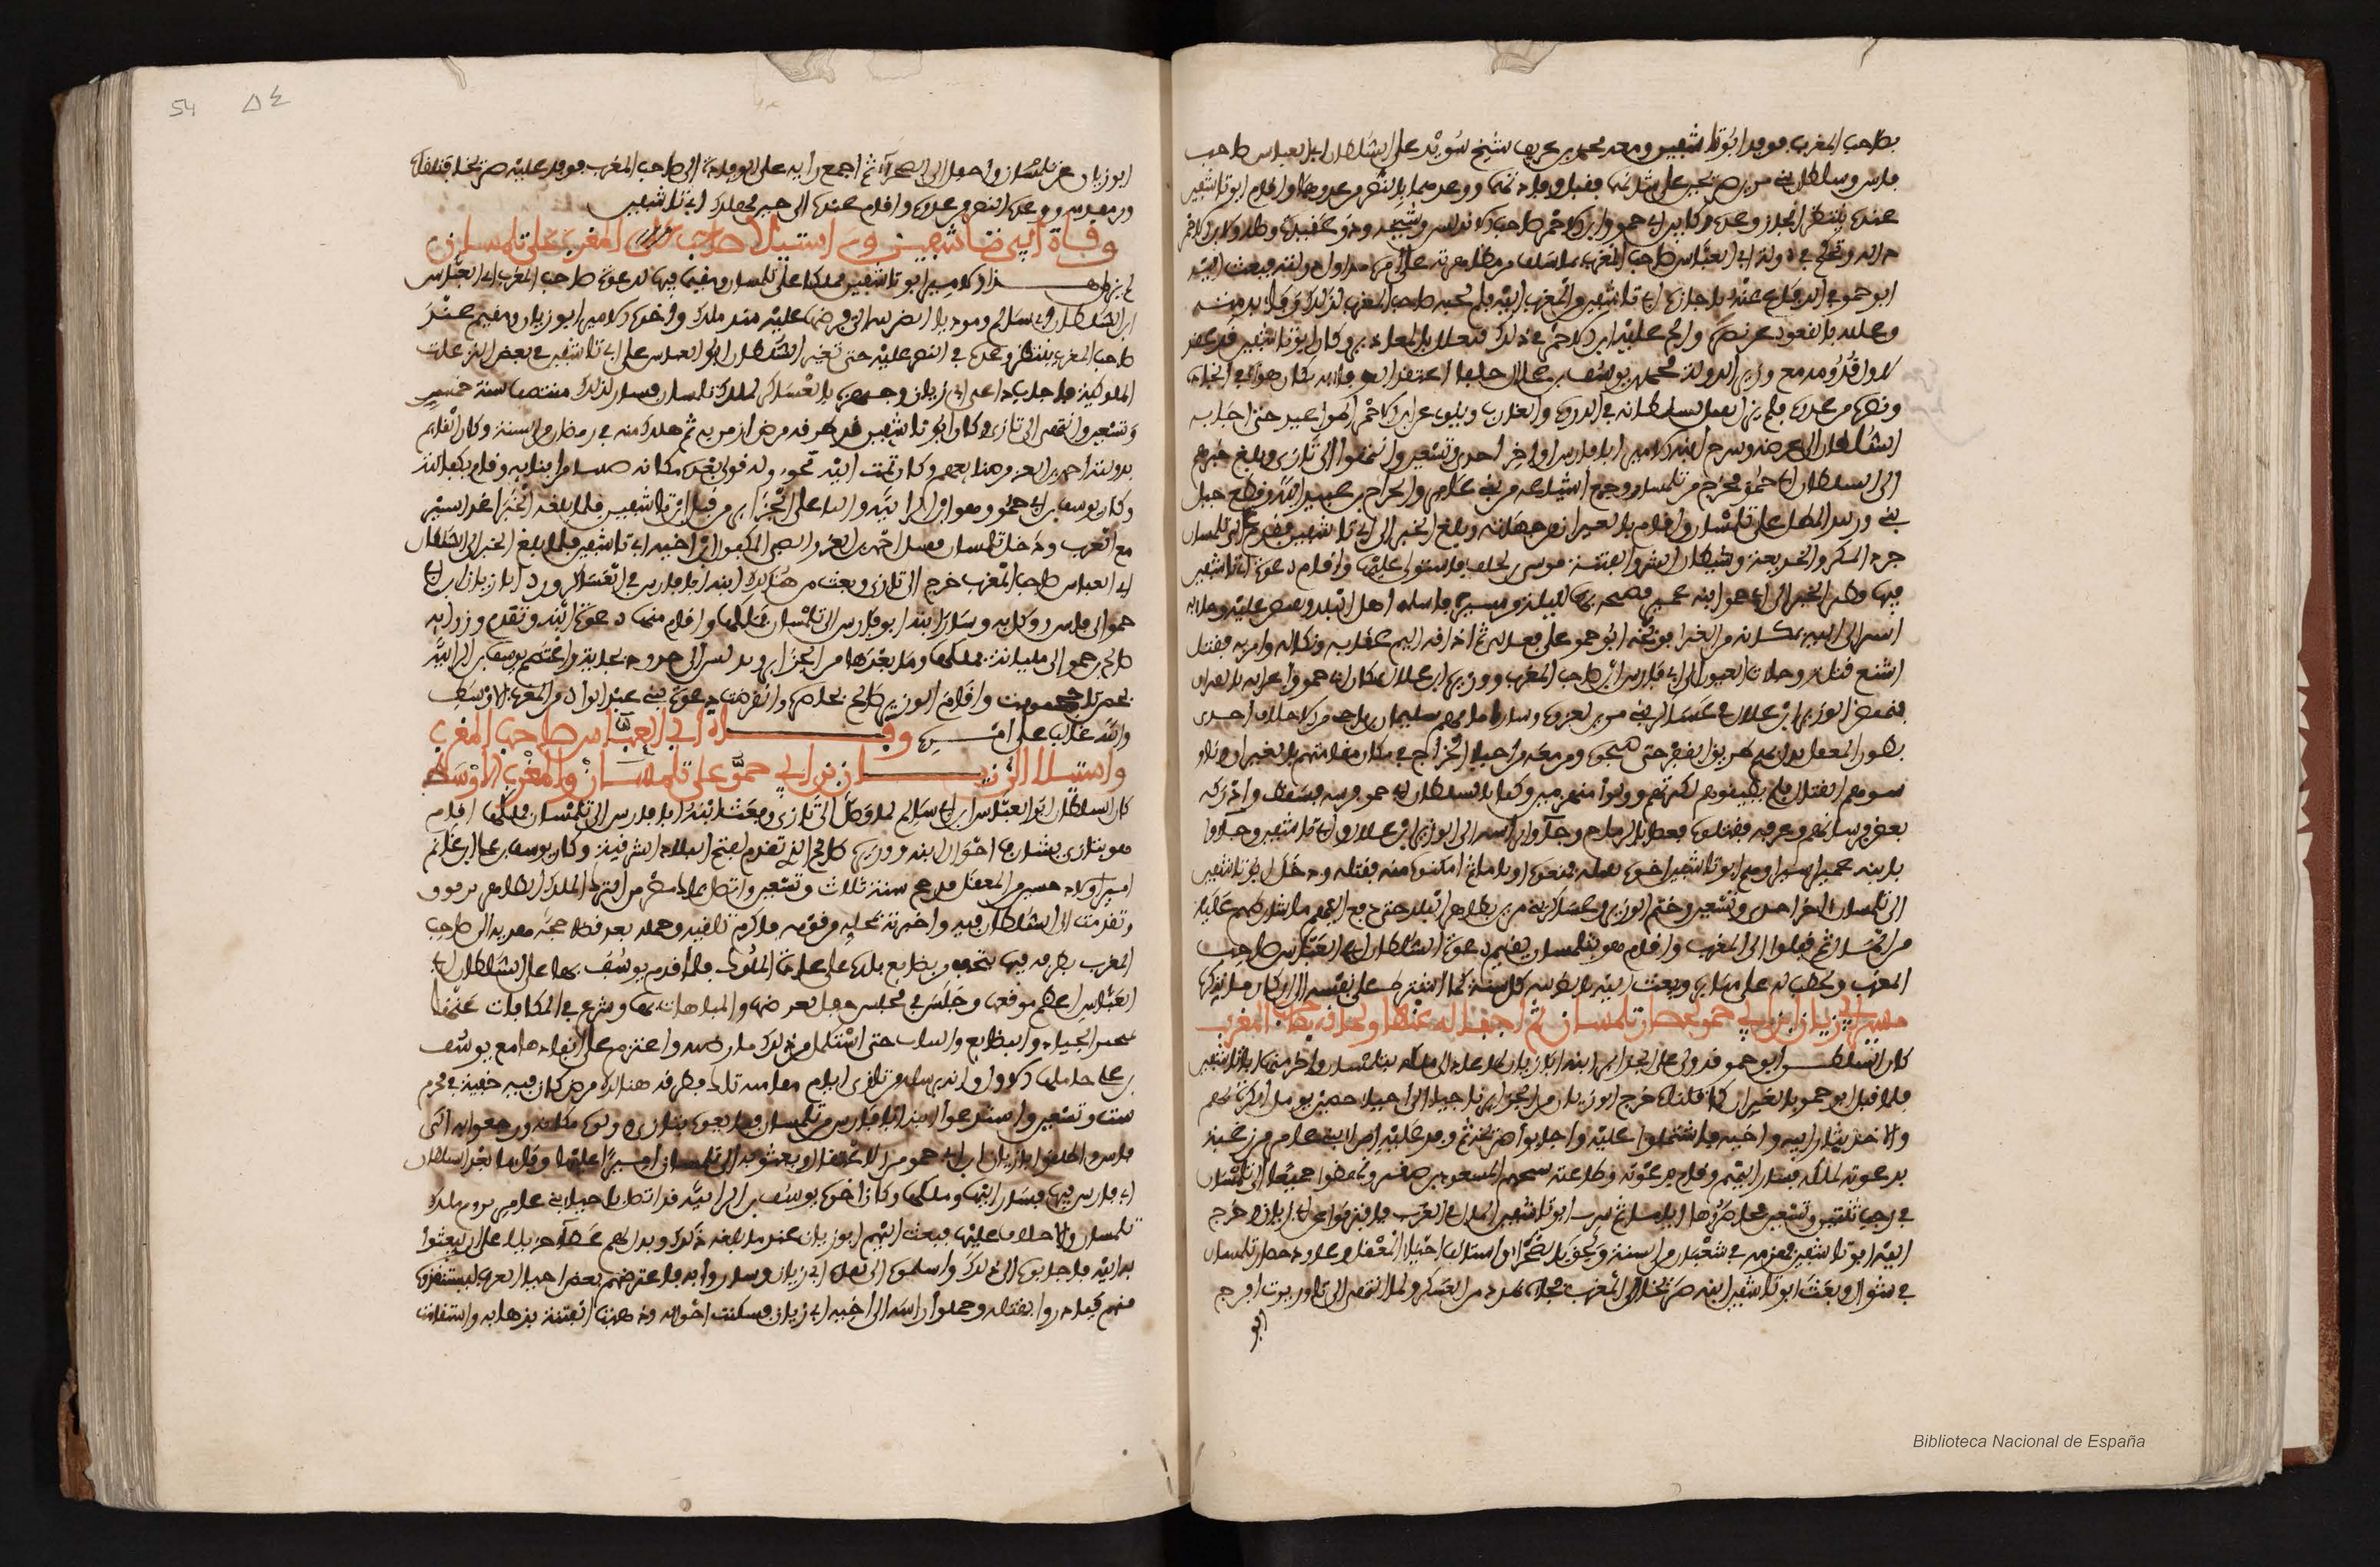 بصاحب المغرب فوفد ابو تاشفين ومعه محمد بن عريف شيخ سويد على السلطان ابي العباس صاحب
فاس وسلطان بني مرين صريخين على شانهما فقبل وفادتهما ووعدهما بالنصر من عدوهما واقام ابو تاشفين
عنده ينتظر انجاز وعده وكان بين ابي حمو وابن الاحمر صاحب الاندلس وشيجة ود وعقيدة وصلة ولابن الاحمر
دالة وتحكم في دولة ابي العباس صاحب المغرب بما سلف من مظاهرته على امره منذ اول دولته فبعث اليه
ابو حمو في الدفاع عنه باجازة ابي تاشفين من المغرب اليه فلم يجبه صاحب المغرب لذلك وفاء بذمته
وعلله بالقعود عن نصره والح عليه ابن الاحمر في ذلك فتعلل بالمعاذير وكان ابو تاشفين قد عقد
لاول قدومه مع وزير الدولة محمد بن يوسف بن علال حلفا اعتقد الوفاء به فكان هواه في انجاده
ونصره من عدوه فلم يزل يفتل لسلطانه في الذروة والغارب ويلوي عن ابن الاحمر المواعيد حتى اجابه
السلطان الى غرضه وسرح ابنه الامير ابا فارس اواخر احدى وتسعين وانتهوا الى تازى وبلغ خبرهم
الى السلطان ابي حمو فخرج من تلمسان وجمع اشياعه من بني عامر والخراج بن عبيد الله وقطع جبل
بني ورنيد المطل على تلمسان واقام بالغيران من جهاته وبلغ الخبر الى ابي تاشفين فقدم الى تلمسان
جرو المكر والخديعة وشيطان الشر والفتنة موسى بن يخلف فاستولى عليها واقام دعوة ابي تاشفين
فيها وطير الخبر الى ابي حمو ابنه عمير فصبحه بها لليلة من مسيره فاسلمه اهل البلد وتقبض عليه وجاء به
اسيرا الى ابيه بمكانه من الغيران فوبخه ابو حمو على فعاله ثم اذاقه اليم عقابه ونكاله وامر به فقتل
اشنع قتلة وجاءت العيون الى ابي فارس ابن صاحب المغرب ووزيره ابن علال بمكان ابي حمو واعرابه بالغيران
فنهض الوزير ابن علال في عساكر بني مرين لغزوه وسار امامهم سليمان بن ناجي من الاحلاف احدى
بطون المعقل يدل بهم طريق القفر حتى صبحوه ومن معه من احياء الخراج في مكان مقامتهم بالغيران وناو
شوهم القتال فلم يطيقوهم لكثرتهم وولوا منهزمين وكبا بالسلطان ابي حمو فرسه فسقط وادركه
بعض فرسانهم وعرفه فقتلوه قعصا بالرماح وجاؤا براسه الى الوزير ابن علال وابي تاشفين وجاؤا
بابنه عمير اسيرا وهم ابو تاشفين اخوه بقتله فمنعوه اياما ثم امكنوه منه فقتله ودخل ابو تاشفين
الى تلمسان اخر احدى وتسعين وخيم الوزير وعساكر بني مرين بظاهر البلد حتى دفع اليهم ما شارطهم عليه
من المال ثم قفلوا الى المغرب واقام هو بتلمسان يقيم دعوة السلطان ابي العباس صاحب
المغرب ويخطب له على منابره ويبعث اليه بالضريبة كل سنة كما اشترط على نفسه الى ان كان ما نذكره
مسير ابي زيان بن ابي حمو لحصار تلمسان ثم اجفاله عنها ولحاقه بصاحب المغرب
كان السلطان ابو حمو قد ولى على الجزائر ابنه ابا زيان لما عاد الى ملكه بتلمسان واخرج منها ابا تاشفين
فلما قتل ابو حمو بالغيران كما قلناه خرج ابو زيان من الجزائر ناجيا الى احياء حصين يؤمل الكرة بهم
والاخذ بثار ابيه واخيه فاشتملوا عليه واجابوا صريخه ثم وفد عليه امراء بني عامر من زغبة
يدعونه لملكه فسار اليهم وقام بدعوته وطاعته شيخهم المسعود بن صغير ونهضوا جميعا الى تلمسان
في رجب ثنتين وتسعين فحاصروها اياما ثم سرب ابو تاشفين المال في العرب فافترقوا عن ابي زيان وخرج
اليه ابو تاشفين فهزمه في شعبان من السنة ولحق بالصحراء واستالف احياء المعقل وعاود حصار تلمسان
في شوال وبعث ابو تاشفين ابنه صريخا الى المغرب فجاءه بمدد من العسكر ولما انتهى الى تاوريرت افرج
ابو
54 ٥٤
ابو زيان عن تلمسان واجفل الى الصحراء ثم اجمع رايه على الوفادة الى صاحب المغرب فوفد عليه صريخا فتلقاه
وبر مقدمه ووعده النصر من عدوه واقام عنده الى حين مهلك ابي تاشفين
وفاة ابي تاشفين واستيلاء صاحب المغرب على تلمسان
لم يزل هذا الامير ابو تاشفين مملكا على تلمسان ومقيما فيها لدعوة صاحب المغرب ابي العباس
ابن السلطان ابي سالم ومؤديا الضريبة التي فرضها عليه منذ ملك واخوه الامير ابو زيان مقيم عند
صاحب المغرب ينتظر وعده في النصر عليه حتى تغير السلطان ابو العباس على ابي تاشفين في بعض النزعات
الملوكية فاجاب داعي ابي زيان وجهزه بالعساكر لملك تلمسان فسار لذلك منتصف سنة خمس
وتسعين وانتهى الى تازى وكان ابو تاشفين قد طرقه مرض ازمن به ثم هلك منه في رمضان من السنة وكان القائم
بدولته احمد بن العز من صنائعهم وكان يمت اليه بخؤولة فولى بعده مكانه صبيا من ابنائه وقام بكفالته
وكان يوسف بن ابي حمو وهو ابن الزابية واليا على الجزائر من قبل ابي تاشفين فلما بلغه الخبر اغذ السير
مع العرب ودخل تلمسان فقتل احمد بن العز والصبي المكفول ابن اخيه ابي تاشفين فلما بلغ الخبر الى السلطان
ابي العباس صاحب المغرب خرج الى تازى وبعث من هنالك ابنه ابا فارس في العساكر ورد ابا زيان بن ابي
حمو الى فاس ووكل به وسار ابنه ابو فارس الى تلمسان فملكها واقام فيها دعوة ابيه وتقدم وزير ابيه
صالح بن حمو الى مليانة فملكها وما بعدها من الجزائر وتدلس الى حدود بجاية واعتصم يوسف بن الزابية
بحصن تاجحمومت واقام الوزير صالح يحاصره وانقرضت دعوة بني عبد الواد من المغرب الاوسط
والله غالب على امره وفاة ابي العباس صاحب المغرب
واستيلاء ابي زيان بن ابي حمو على تلمسان والمغرب الاوسط
كان السلطان ابو العباس ابن ابي سالم لما وصل الى تازى وبعث ابنه ابا فارس الى تلمسان فملكها اقام
هو بتازى يشارف احوال ابنه ووزيره صالح الذي تقدم لفتح البلاد الشرقية وكان يوسف بن علي بن غانم
امير اولاد حسين من المعقل قد حج سنة ثلاث وتسعين واتصل بملك مصر من الترك الملك الظاهر برقوق
وتقدمت الى السلطان فيه واخبرته بمحله من قومه فاكرم تلقيه وحمله بعد قضاء حجه هدية الى صاحب
المغرب يطرفه فيها بتحف وبضايع بلده على عادة الملوك فلما قدم يوسف بها على السلطان ابي
العباس اعظم موقعها وجلس في مجلس حفل لعرضها والمباهاة بها وشرع في المكافاة عنها
بتخير الجياد والبضايع والثياب حتى استكمل من ذلك ما رضيه واعتزم على انفاذها مع يوسف
بن علي حاملها الاول وانه يرسله من تازى ايام مقامته تلك فطرقه هنالك مرض كان فيه حتفه في محرم
ست وتسعين واستدعوا ابنه ابا فارس من تلمسان فبايعوه بتازى وولوه مكانه ورجعوا به الى
فاس واطلقوا ابا زيان ابن ابي حمو من الاعتقال وبعثوا به الى تلمسان اميرا عليها وقائما بعد السلطان
ابي فارس فيها فسار اليها وملكها وكان اخوه يوسف بن الزابية قد اتصل باحياء بني عامر يروم ملك
تلمسان والاجلاب عليها فبعث اليهم ابو زيان عندما بلغه ذلك وبذل لهم عطاء جزيلا على ان يبعثوا
به اليه فاجابوه الى ذلك واسلموه الى ثقات ابي زيان وساروا به فاعترضهم بعض احياء العرب ليستنقذوه
منهم فبادروا بقتله وحملوا راسه الى اخيه ابي زيان فسكنت احواله وذهبت الفتنة بذهابه واستقامت
Biblioteca Nacional de España